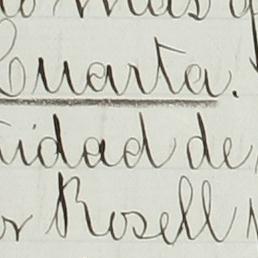 mas
Cuarta.
tidad de
or Rosell